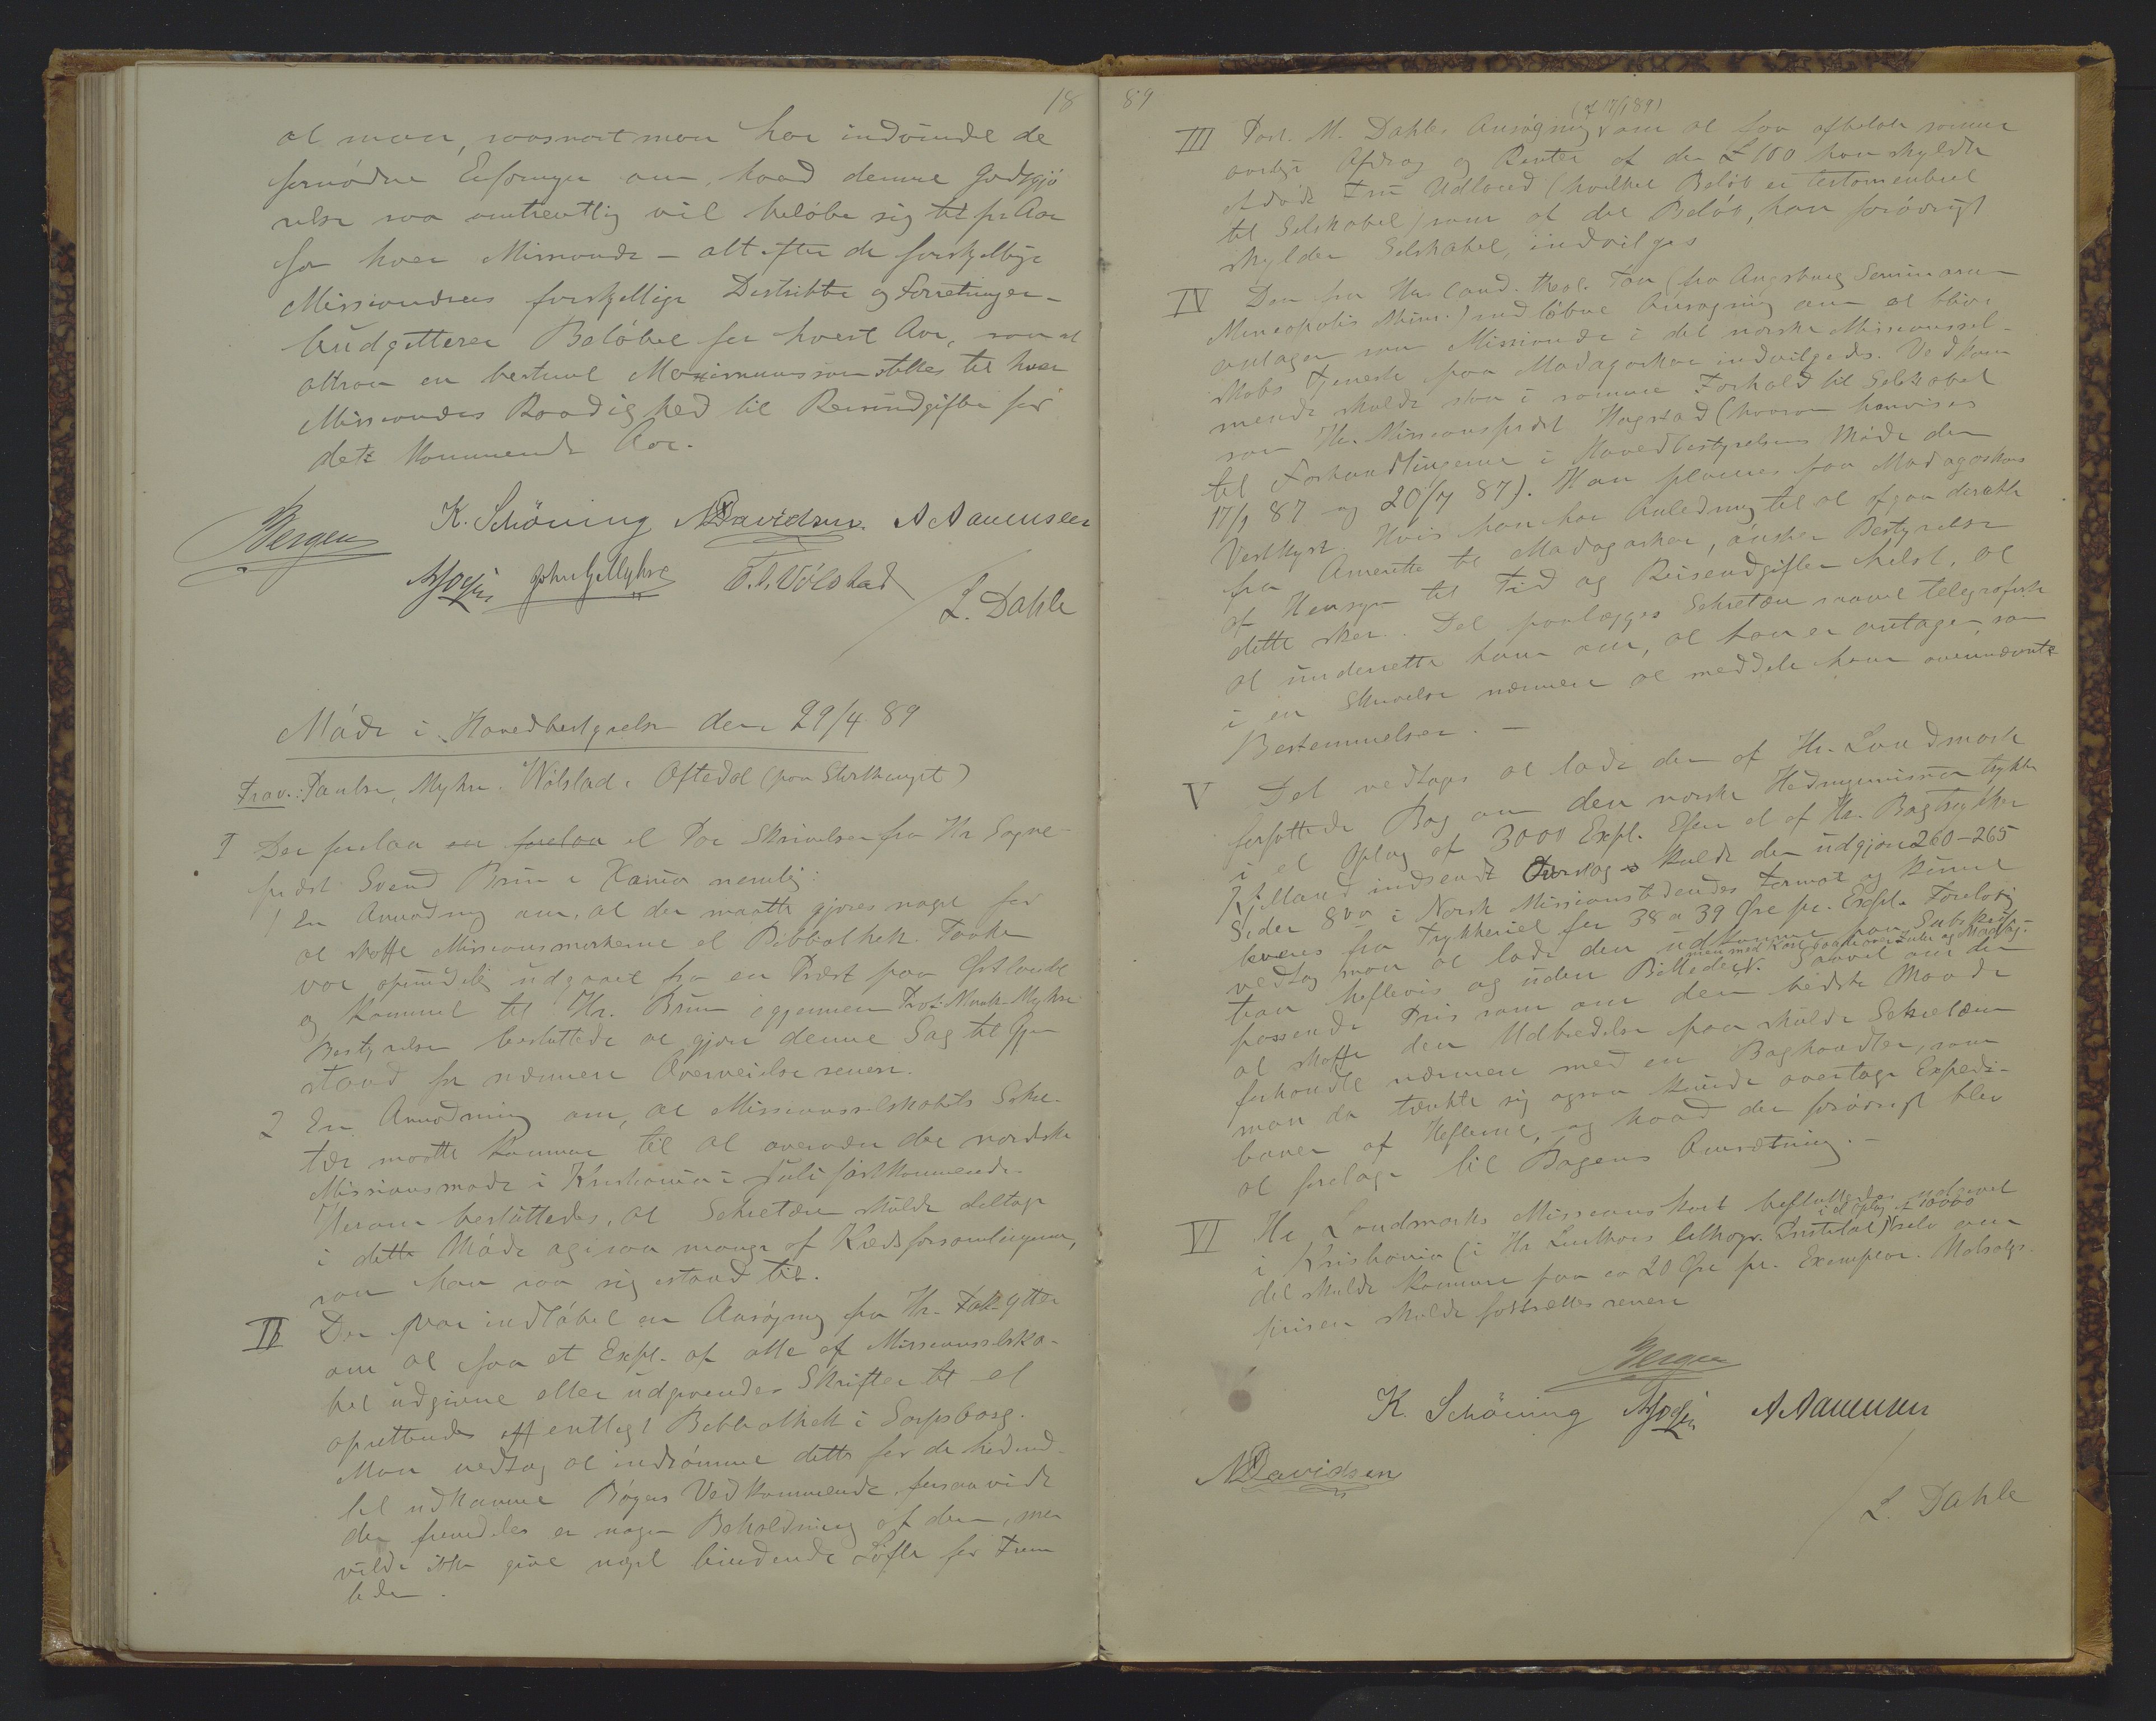 18
at man, saasnart man har indvundet de
fornødne Erfaringer om, hvad denne Godtgjø
relse saa omtrentlig vil beløbe sig til pr Aar
for hver Missionær – alt efter de forskjellige
Missionærers forskjellige Distrikter og Forretninger –
budgetterer Beløbet for hvert Aar, saa at
altsaa en bestemt Maximumssum stilles til hver
Missionærs Raadighed til Reiseudgifter for
det kommende Aar.
Bergen K. Schöning NDavidsen A Aanensen
John G Myhre T. S. Vølstad
L. Dahle
Møde i Hovedbestyrelsen den 29/4 89
Frav.: Paulsen, Myhre. Vølstad. Oftedal (paa Storthinget)
I Der forelaa en forelaa et Par Skrivelser fra Hr Sogne-
præst Svend Brun i Xania nemlig:
1 En Anmodning om, at der maatte gjøres noget for
at skaffe Missionsmarkerne et Bibliothek. Tanken
var oprindelig udgaaet fra en Præst paa Østlandet
og kommet til Hr. Brun igjennem Prof. Myhre
Bestyrelsen besluttede at gjøre denne Sag til Gjen
stand for nærmere Overveielse senere.
2 En Anmodning om, at Missionsselskabets Sekre-
tær maatte komme til at overvære det nordiske
Missionsmøde i Kristiania i Juli førstkommende.
Herom besluttedes, at Sekretæren skulde deltage
i dette Møde og i saa mange af Kredsforsamlingerne,
som han saa sig istand til.
II Der var indløbet en Ansøgning fra Hr. Ytter
om at faa et Expl. af alle af Missionsselska-
bet udgivne eller udgivendes Skrifter til et
oprettendes offentligt Bibliothek i Sarpsborg.
Man vedtog at indrømme dette for de hidind-
til udkomne Bøgers Vedkommende, forsaavidt
der fremdeles er nogen Beholdning af dem, men
vilde ikke give noget bindende Løfte for Frem
tiden.
89
(af 17/1 89)
III Past. M. Dahles Ansøgning om at faa afbetale samme
aarlige Afdrag og Renter af de £ 100 han skylder
afdøde Fru Udland (hvilket Beløb er testamenteret
til Selskabet) som af det Beløb, han forøvrigt
skylder Selskabet, indvilges
IV Den fra Hr Cand. theol. Tou (fra Augsburg Seminarium
Mineapolis Minn.) indløbne Ansøgning om at blive
antagen som Missionær i det norske Missionssel-
skabs Tjeneste paa Madagaskar indvilgedes. Vedkom
mende skulde staa i samme Forhold til Selskabet
som Hr. Missionsprest Hogstad (hvorom henvises
til Forhandlingerne i Hovedbestyrelsens Møde den
17/1 87 og 20/7 87). Han placeres paa Madagaskars
Vestkyst. Hvis han har Anledning til at afgaa direkte
fra Amerika til Madagaskar, ønsker Bestyrelsen
af Hensyn til Tid og Reiseudgifter helst, at
dette sker. Det paalægges Sekretæren saavel telegrafisk
at underrette ham om, at han er antagen, som
i en Skrivelse nærmere at meddele ham ovennævnte
Bestemmelser. –
V Det vedtages at lade den af Hr. Landmark
forfattede Bog om den norske Hedningemission trykke
i et Oplag af 3000 Expl. Efter et af Hr. Bogtrykker
Kielland indsendt Overslag skulde den udgjøre 260–265
Sider 8vo i Norsk Missionstidendes Format og kunne
leveres fra Trykkeriet for 38 a 39 Øre pr. Expl. Foreløbig
vedtog man at lade den udkomme paa Subskrip-
tion heftevis og uden Billeder. Saavel om den
men med Kart baade over Zulu og Madag.
passende Pris som om den bedste Maade
at skaffe den Udbredelse paa skulde Sekretæren
forhandle nærmere med en Boghandler, som
man da tænkte sig ogsaa kunde overtage Expedi-
tionen af Hefterne, og hvad der forøvrigt blev
at foretage til Bogens Omsætning. –
VI Hr Landmarks Missionskart besluttedes udgivet
i et Oplag af 10000
i Kristiania (i Hr lithogr. Institut) selv om
det skulde komme paa ca 20 Øre pr. Exemplar. Udsalgs
prisen skulde fastsættes senere
Bergen
K. Schöning A Aanensen
NDavidsen
L. Dahle